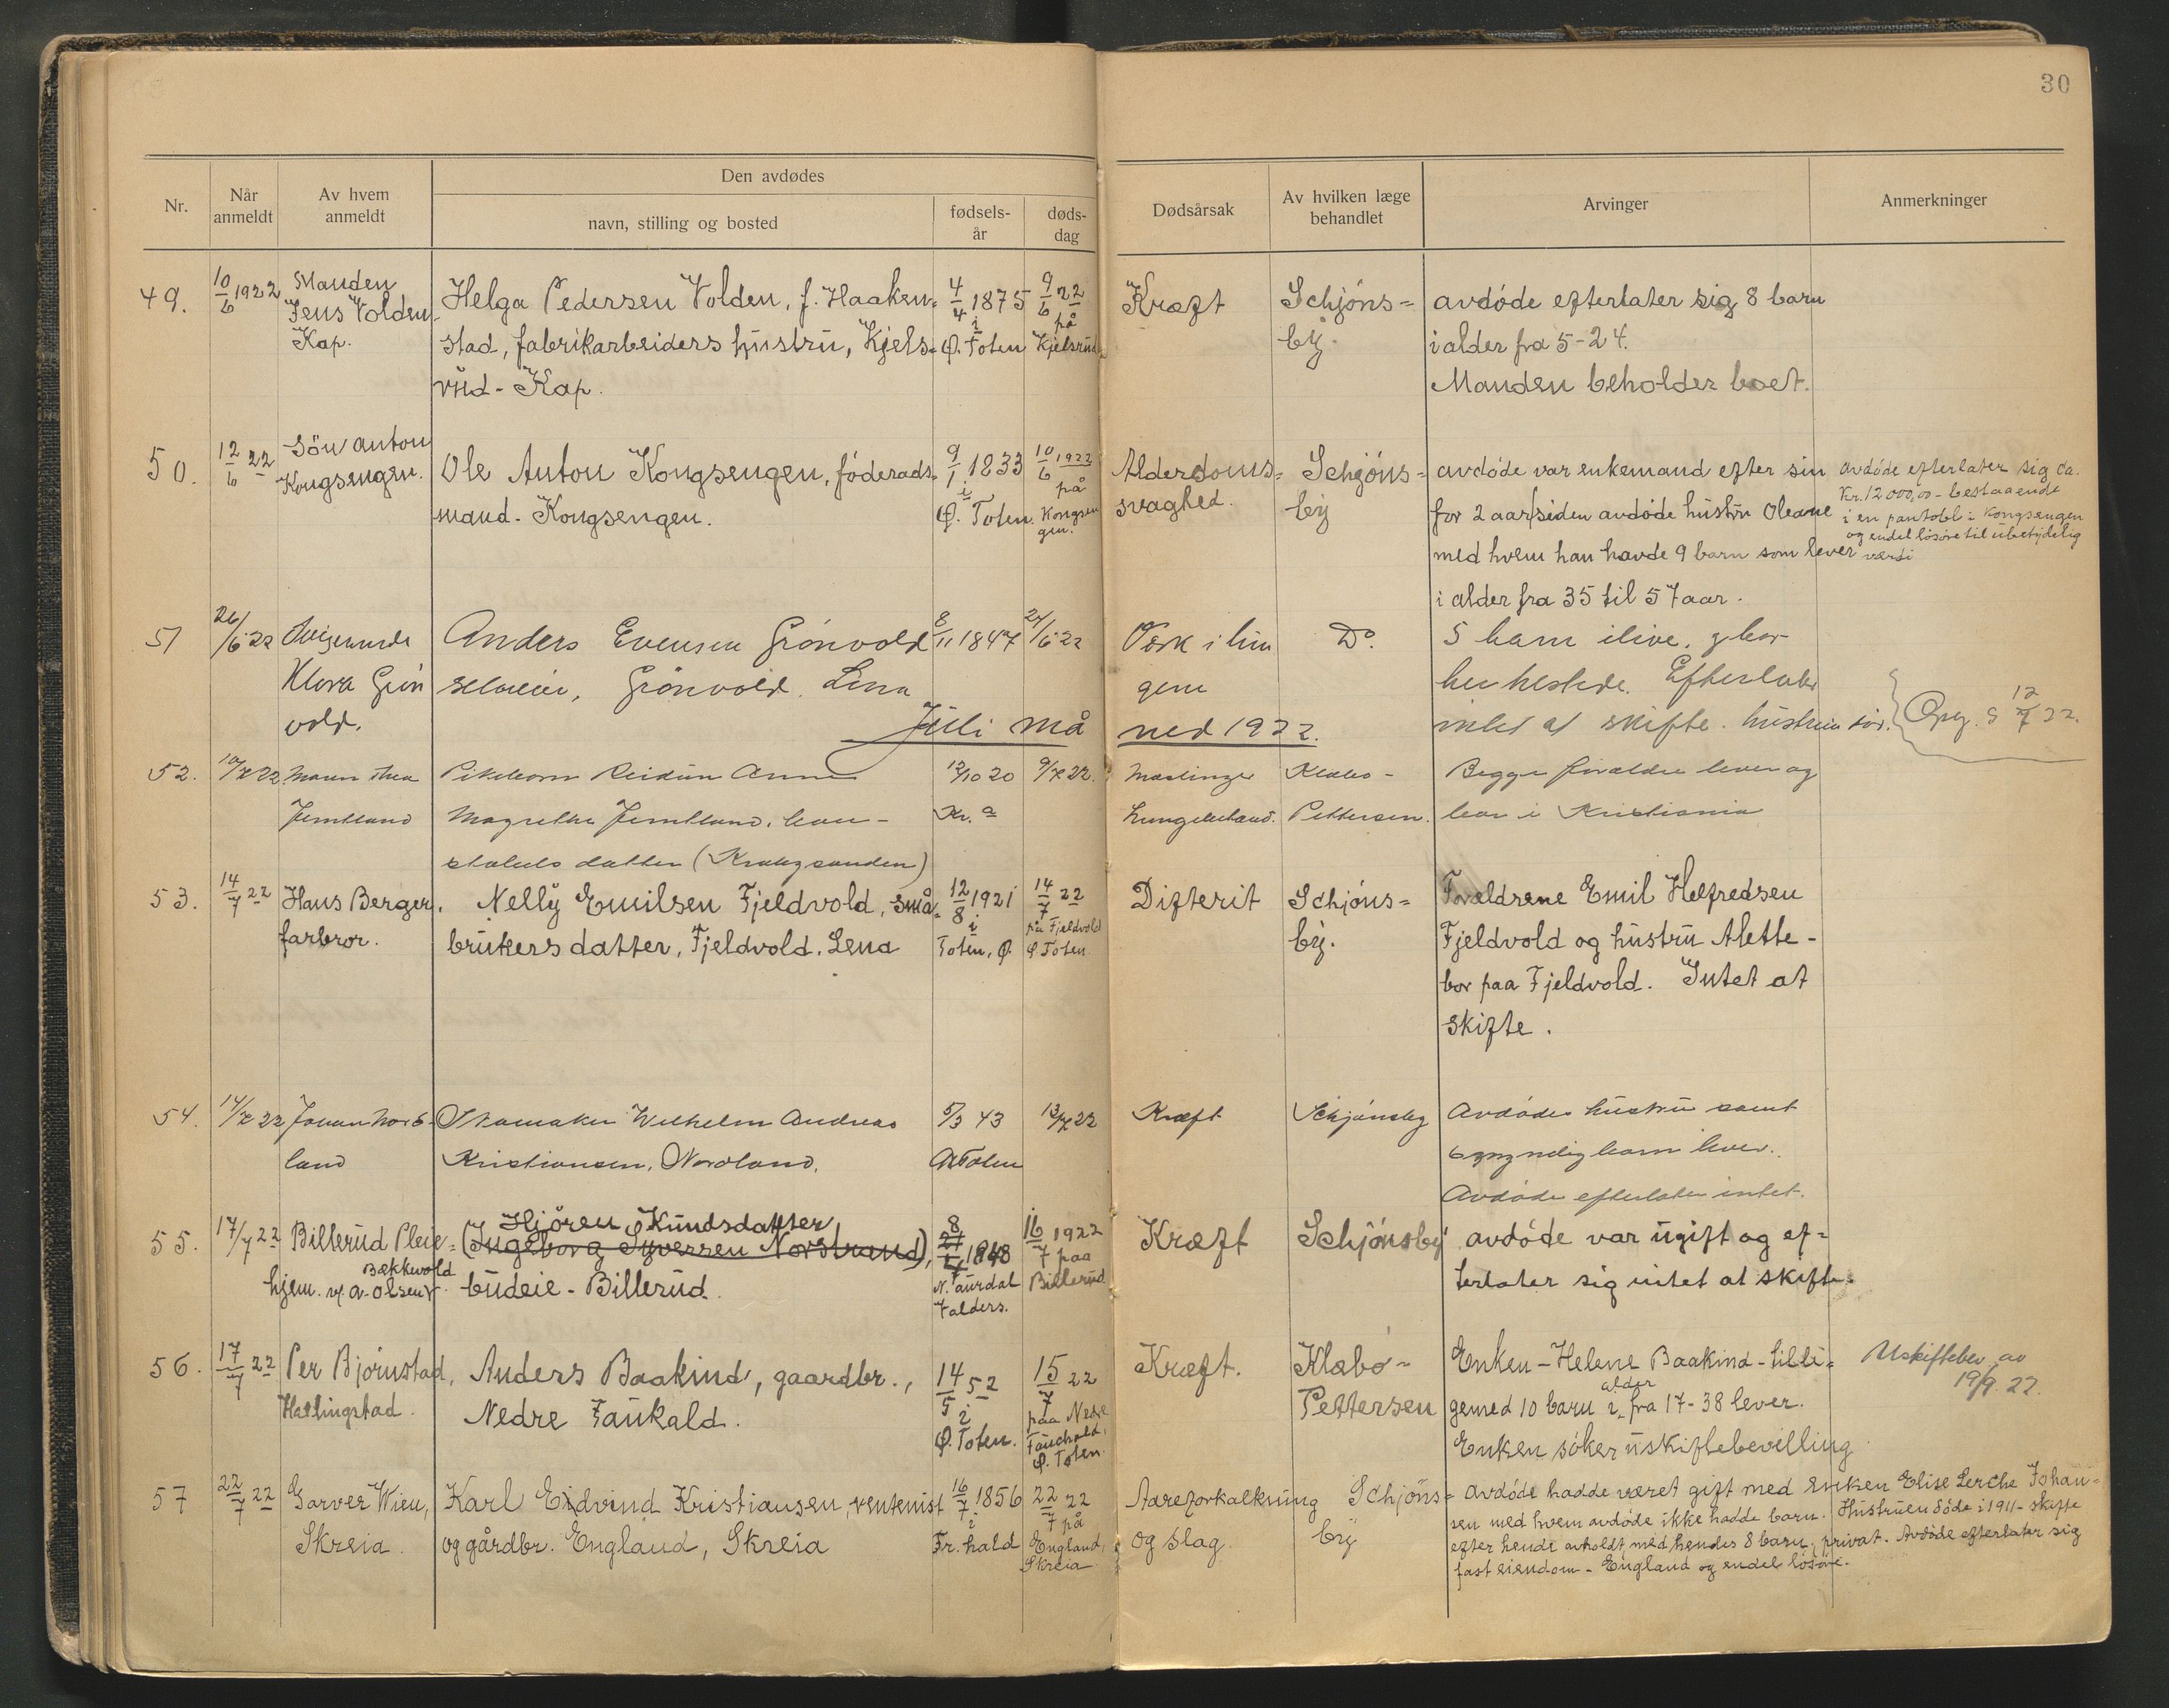 30
Nr.
Når anmeldt
Av hvem anmeldt
Den avdødes
navn, stilling og bosted
fødsels-år
døds-dag
Dødsårsak
Av hvilken læge behandlet
Arvinger
Anmerkninger
49.
10/6 1922
Manden
Jens Volden
Kap.
Helga Pedersen Volden, f. Haaken=
stad, fabrikarbeiders hustru, Kjels=
rud - Kap.
4/4 1875
i
Ø. Toten
9/6 22
på
Kjelsrud
Kræft
Schjøns=
by.
avdøde efterlater sig 8 barn
i alder fra 5-24.
Manden beholder boet.
50.
12/6 22
Søn Anton
Kongsengen.
Ole Anton Kongsengen, føderads=
mand. Kongsengen.
9/1 1833
i
Ø. Toten.
10/6 1922
på
Kongsen
gen.
Alderdoms=
svaghed.
Schjøns=
by
avdøde var enkemand efter sin
for 2 aar siden avdøde hustru Oleane
med hvem han havde 9 barn som lever
i alder fra 35 til 57 aar.
avdøde efterlater sig ca.
Kr. 12 000,00 - bestaaende
i en pantobl. i Kongsengen
og endel løsøre til ubetydelig
værdi
51
26/6 22
Svigerinde
Klara Grøn
vold.
Anders Evensen Grønvold
selveier, Grønvold. Lena
8/11 1847
24/6 22
Værk i lun
gene
Do.
5 barn ilive, g bor
her hestede. Efterlater
intet at skifte. hustruen død.
Opg. S 12/7 22.
Juli måned 1922.
52.
10/7 22
Maren Thea
Jemtland
Pikebarn Reidun Anna
Magrethe Jemtland, hau-
stabels datter (Krabysanden)
12/10 20
Kr. a
9/7 22.
Mæslinger
Lungebetænd.
Klæbo-
Pettersen.
Begge forældre lever og
bor i Kristiania
53.
14/7 22
Hans Berger.
farbror.
Nelly Emilsen Fjeldvold, små=
brukers datter, Fjeldvold. Lena
12/8 1921
i
Toten, Ø.
14/7 22
på Fjeldvold
Ø. Toten.
Difterit
Schjøns=
by.
Forældrene Emil Helfredsen
Fjeldvold og hustru Alette -
bor paa Fjeldvold. Intet at
skifte.
54.
14/7 22
Johan Nord-
land
Skomaker Wilhelm Andreas
Kristiansen, Nordland.
5/3 43
Ø. Toten
13/7 22
Kræft
Schjønsby
Avdødes hustru samt
6 myndig barn lever.
Avdøde efterlater intet.
55.
17/7 22
Billerud Pleie=
Bækkevold
hjem. v. A. Olsen
Hjøren Knudsdatter
(Ingeborg Syversen Norstrand),
budeie - Billerud.
8/7 1848
N. Aurdal
Valders.
16/7 1922
paa
Billerud
Kræft
Schjønsby
avdøde var ugift og ef=
terlater sig intet at skifte.
56.
17/7 22
Per Bjørnstad,
Hallingstad.
Anders Baakind, gaardbr.,
Nedre Faukald.
14/5 52
i
Ø. Toten.
15/7 22
paa Nedre
Fauchald,
Ø. Toten.
Kræft.
Klæbo-
Pettersen
Enken - Helene Baakind - tilli=
gemed 10 barn i alder fra 17-38 lever.
Enken søker uskiftebevilling.
Uskiftebev. av
19/9 22.
57
22/7 22
Garver Wien,
Skreia.
Karl Eidvind Kristiansen, rentenist
og gårdbr. England, Skreia
16/7 1856
i
Fr.hald
22/7 22
på
England,
Skreia
Aareforkalkning
og slag.
Schjøns=
by
avdøde hadde været gift med enken Elise Lerche Johan=
sen med hvem avdøde ikke hadde barn. Hustruen døde i 1911 - skifte
efter hende avholdt med hendes 8 barn, privat. Avdøde efterlater sig
fast eiendom - England og endel løsøre.